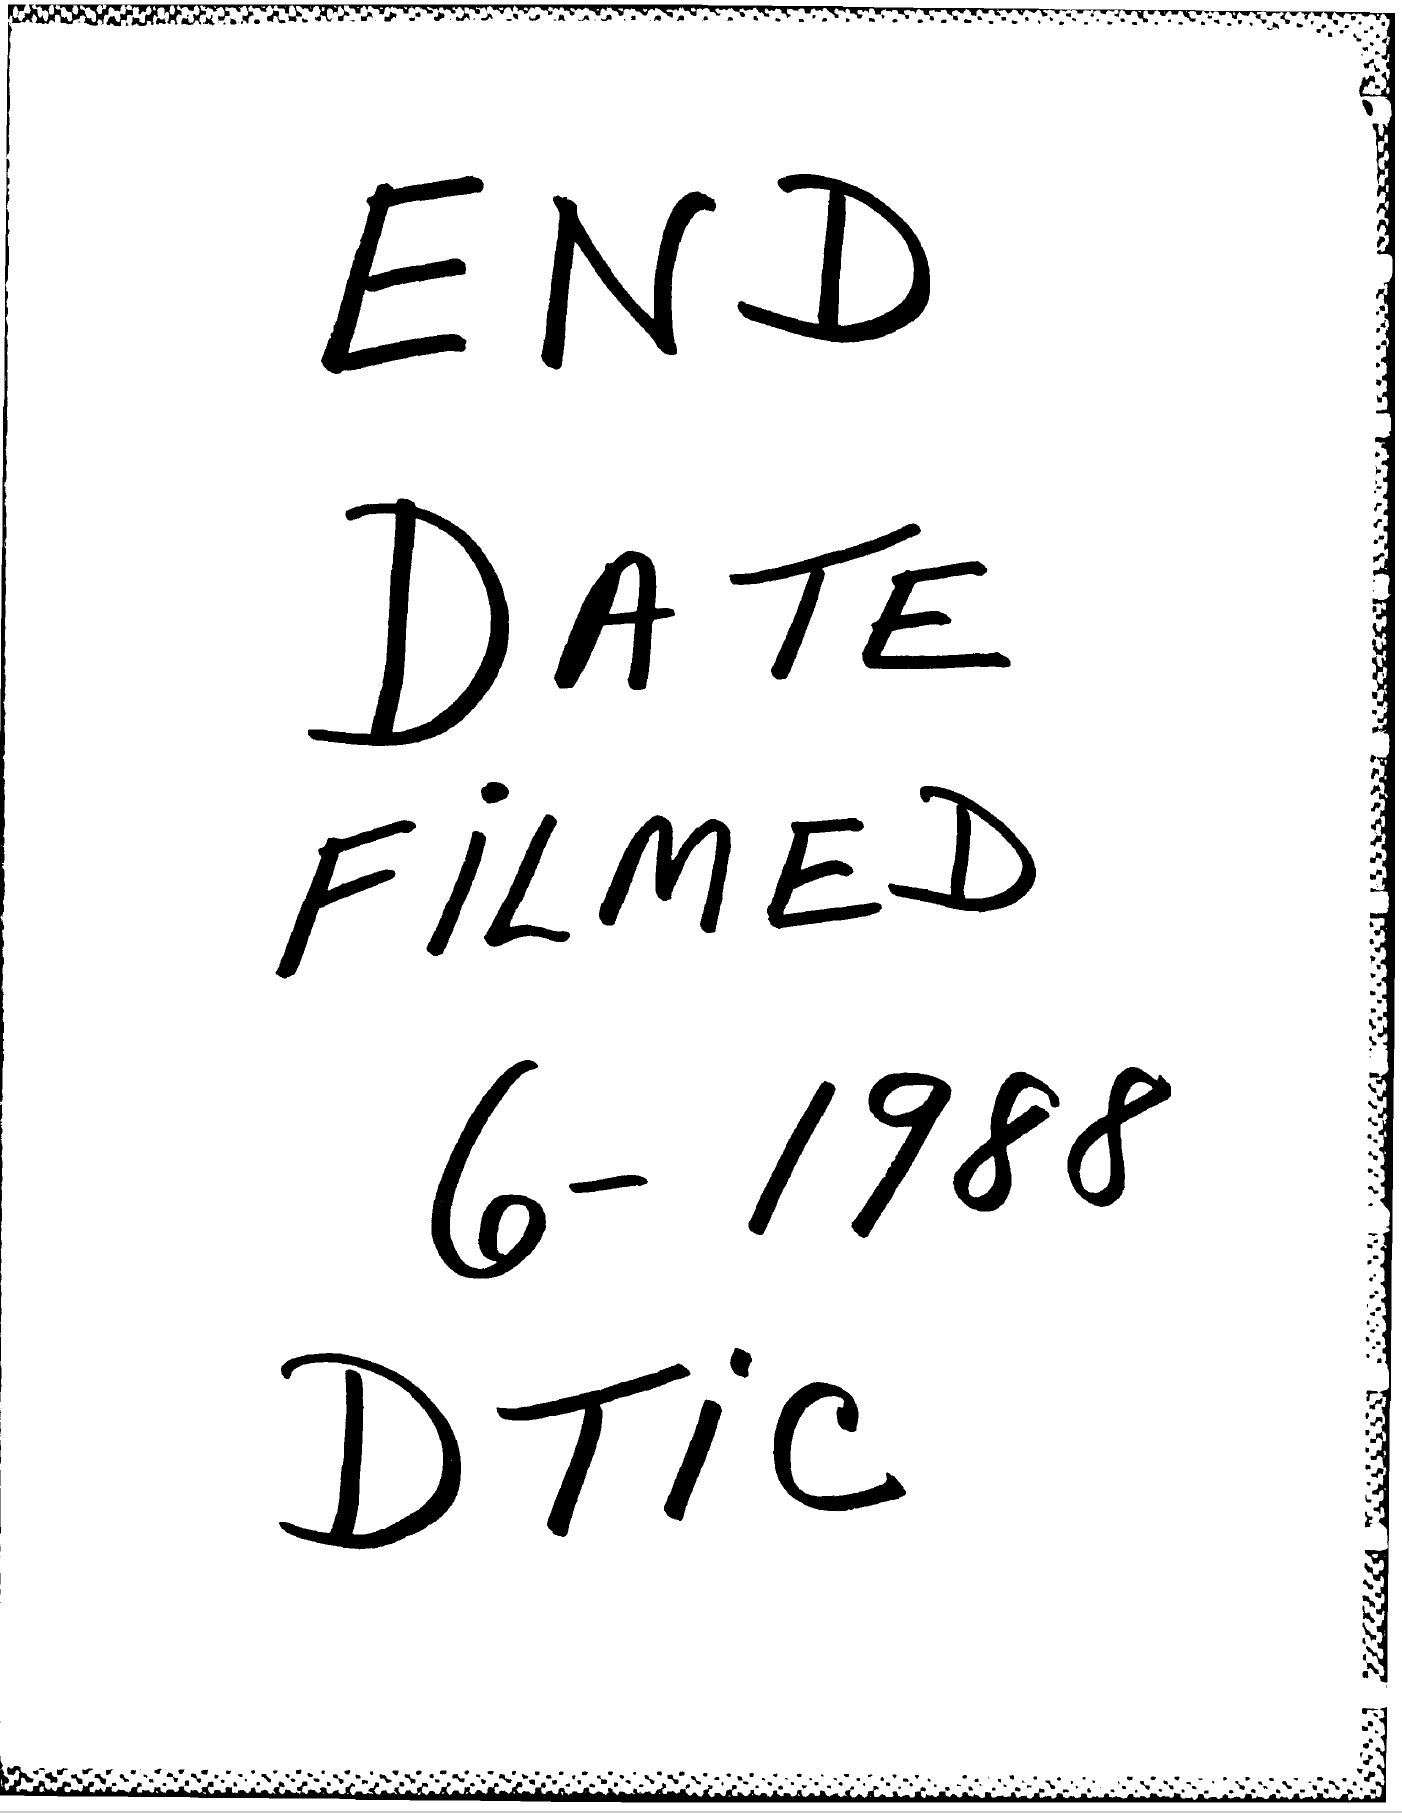 END
DATE
FiLMED
6- 1988
DTiC